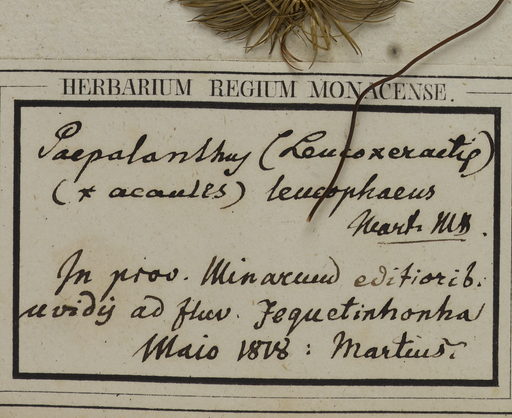 HERBARIUM REGIUM MONACENSE.
Paepalanthus (Leucoxeractis)
(* acaules) leucophaeus
Mart. MS.
In prov. Minarum editiorib.
uvidis ad fluv. Jequetinhonha
Maio 1818 : Martius.